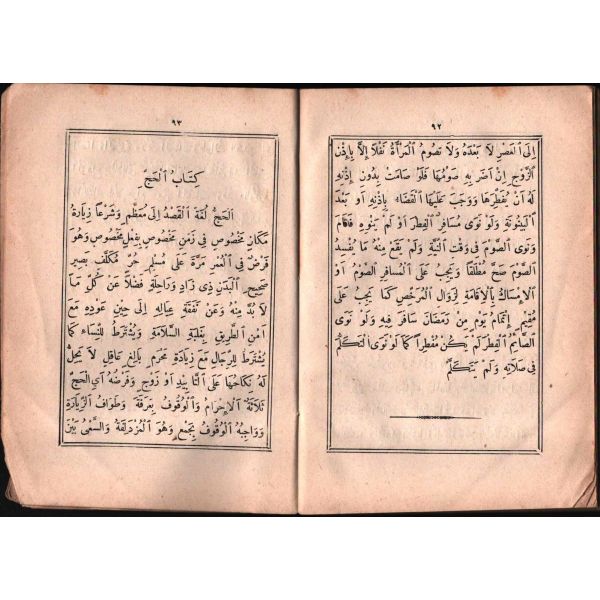 ٩٢
إِلَى الْعَصْرِ لَا بَعْدَهُ وَلَا تَصُومُ الْمَرْأَةُ نَفْلًا إِلَّا بِإِذْنِ
الزَّوْجِ إِنْ أَضَرَّ بِهِ صَوْمُهَا فَلَوْ صَامَتْ بِدُونِ إِذْنِهِ
لَهُ أَنْ يُفَطِّرَهَا وَوَجَبَ عَلَيْهَا الْقَضَاءُ بِإِذْنِهِ أَوْ بَعْدَ
الْبَيْنُونَةِ وَلَوْ نَوَى مُسَافِرٌ الْفِطْرَ أَوْ لَمْ يَنْوِهِ فَأَقَامَ
وَنَوَى الصَّوْمَ فِى وَقْتِ النِّيَّةِ وَلَمْ يَقَعْ مِنْهُ مَا يُفْسِدُ
الصَّوْمَ صَحَّ مُطْلَقًا وَيَجِبُ عَلَى الْمُسَافِرِ الصَّوْمُ أَوْ
الْإِمْسَاكُ بِالْإِقَامَةِ لِزَوَالِ الْمُرَخِّصِ كَمَا يَجِبُ عَلَى
مُقِيمٍ إِتْمَامُ يَوْمٍ مِنْ رَمَضَانَ سَافَرَ فِيهِ وَلَوْ نَوَى
الصَّائِمُ الْفِطْرَ لَمْ يَكُنْ مُفْطِرًا كَمَا لَوْ نَوَى التَّكَلُّمَ
فِى صَلَاتِهِ وَلَمْ يَتَكَلَّمْ
٩٣
كِتَابُ الْحَجِّ
الْحَجُّ لُغَةً الْقَصْدُ إِلَى مُعَظَّمٍ وَشَرْعًا زِيَارَةُ
مَكَانٍ مَخْصُوصٍ فِى زَمَنٍ مَخْصُوصٍ بِفِعْلٍ مَخْصُوصٍ وَهُوَ
فَرْضٌ فِى الْعُمْرِ مَرَّةً عَلَى مُسْلِمٍ حُرٍّ مُكَلَّفٍ بَصِيرٍ
صَحِيحِ الْبَدَنِ ذِى زَادٍ وَرَاحِلَةٍ فَضْلًا عَنْ كُلِّ مَا
لَا بُدَّ مِنْهُ وَعَنْ نَفَقَةِ عِيَالِهِ إِلَى حِينِ عَوْدِهِ مَعَ
أَمْنِ الطَّرِيقِ بِغَلَبَةِ السَّلَامَةِ وَيُشْتَرَطُ لِلنِّسَاءِ كَمَا
يُشْتَرَطُ لِلرِّجَالِ مَعَ زِيَادَةِ مَحْرَمٍ بَالِغٍ عَاقِلٍ لَا يَحِلُّ
لَهُ نِكَاحُهَا عَلَى التَّأْبِيدِ أَوْ زَوْجٍ وَفَرْضُهُ أَىِ الْحَجِّ
ثَلَاثَةٌ الْإِحْرَامُ وَالْوُقُوفُ بِعَرَفَةَ وَطَوَافُ الزِّيَارَةِ
وَوَاجِبُهُ الْوُقُوفُ بِجَمْعٍ وَهُوَ الْمُزْدَلِفَةُ وَالسَّعْىُ بَيْنَ